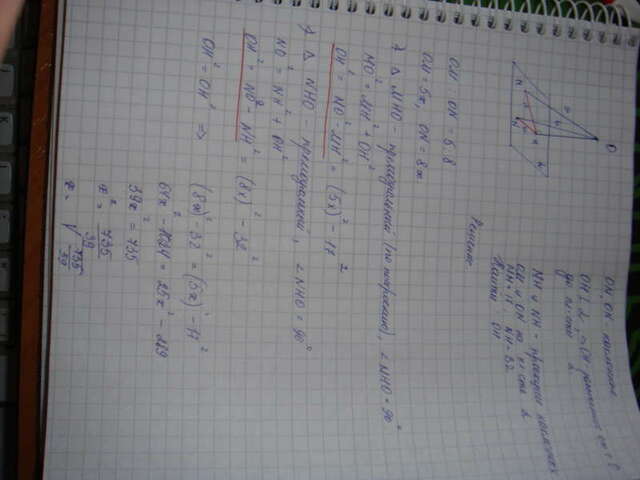 ON, OM - наклонные
OH ⊥ α, OH - расстояние от т. O
до пл-сти α
MH и NH - проекции наклонных
OM и ON на пл-сть α
MH = 17, NH = 32
Найти: OH
Решение
OM : ON = 5 : 8
OM = 5x, ON = 8x
Δ MHO - прямоугольный (по построению), ∠NHO = 90°
MO² = MH² + OH²
OH² = MO² - MH² = (5x)² - 17²
Δ NHO - прямоугольный, ∠NHO = 90°
NO² = NH² + OH²
OH² = NO² - NH² = (8x)² - 32²
OH² = OH² =>
(8x)² - 32² = (5x)² - 17²
64x² - 1024 = 25x² - 289
39x² = 735
x² = 735/39
x = √735/39